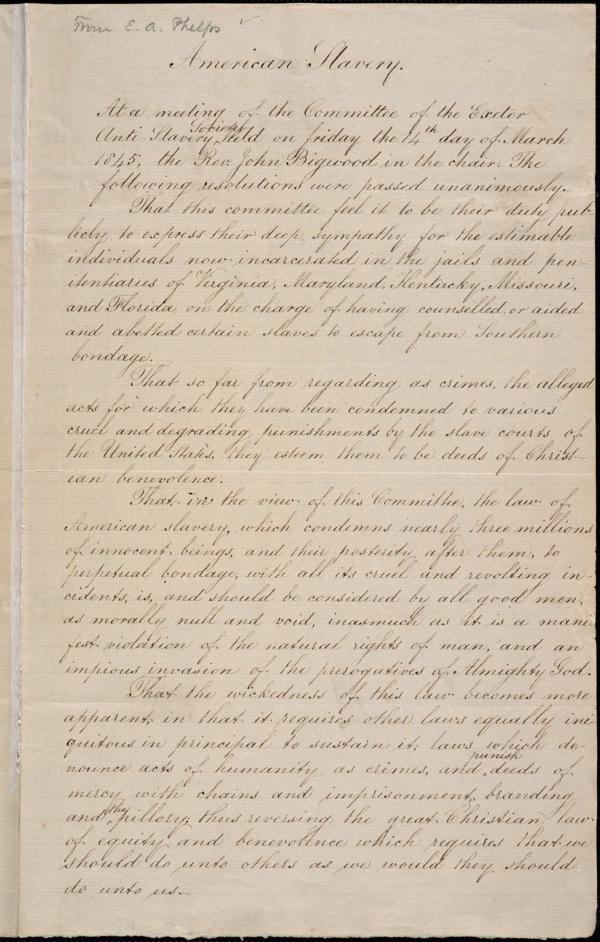 From E. A. Phelps
American Slavery.
At a meeting of the Committee of the Exeter
Anti-Slavery Society held on friday the 14th day of March
1845, the Rev. John Bigwood in the chair: The
following resolutions were passed unanimously.
That this committee feel it to be their duty pub-
licly to express their deep sympathy for the estimable
individuals now incarcerated in the jails and pen-
itentiaries of Virginia, Maryland, Kentucky, Missouri,
and Florida on the charge of having counselled or aided
and abetted certain slaves to escape from Southern
bondage.
That so far from regarding as crimes, the alleged
acts for which they have been condemned to various
cruel and degrading punishments by the slave courts of
the United States, they esteem them to be deeds of Christ-
ian benevolence.
That in the view of this Committee, the law of
American slavery, which condemns nearly three millions
of innocent beings, and their posterity after them, to
perpetual bondage, with all its cruel and revolting in-
cidents, is, and should be considered by all good men,
as morally null and void, inasmuch as it is a mani
fest violation of the natural rights of man, and an
impious invasion of the prerogatives of Almighty God.
That the wickedness of this law becomes more
apparent, in that it requires other laws equally ini
quitous in principal to sustain it; laws which de-
nounce acts of humanity as crimes, and punish deeds of
mercy with chains and imprisonment, branding
and the pillory; thus reversing the great Christian law
of equity and benevolence which requires that we
should do unto others as we would they should
do unto us.